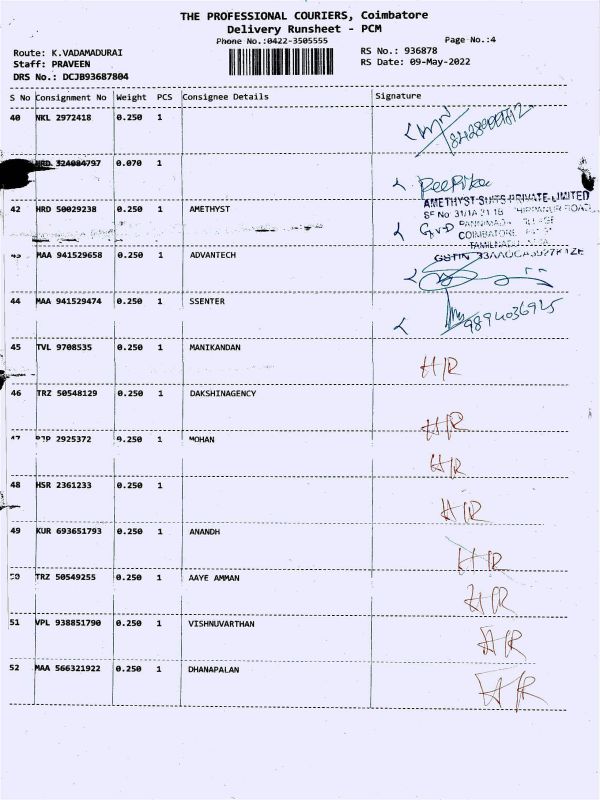 THE PROFESSIONAL COURIERS, Coimbatore
Delivery Runsheet - PCM
Phone No.:0422-3505555 Page No.:4
Route: K.VADAMADURAI RS No.: 936878
Staff: PRAVEEN RS Date: 09-May-2022
DRS No.: DCJB93687804
S No Consignment No Weight PCS Consignee Details Signature
40 NKL 2972418 0.250 1
HRD 324084797 0.070 1
AMETHYST SUITS PRIVATE LIMITED
42 HRD 50029238 0.250 1 AMETHYST
SF No 31/1A
COIMBATORE
MAA 941529658 0.250 1 ADVANTECH
GSTIN
44 MAA 941529474 0.250 1 SSENTER
9894036925
45 TVL 9708535 0.250 1 MANIKANDAN
H/R
46 TRZ 50548129 0.250 1 DAKSHINAGENCY
H/R
47 2925372 0.250 1 MOHAN
H/R
48 HSR 2361233 0.250 1
H/R
49 KUR 693651793 0.250 1 ANANDH
H/R
50 TRZ 50549255 0.250 1 AAYE AMMAN
H/R
51 VPL 938851790 0.250 1 VISHNUVARTHAN
H/R
52 MAA 566321922 0.250 1 DHANAPALAN
H/R